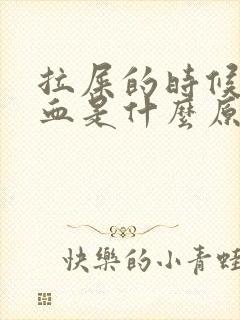 拉屎的時候
血是什麼原
快樂的小青蛙